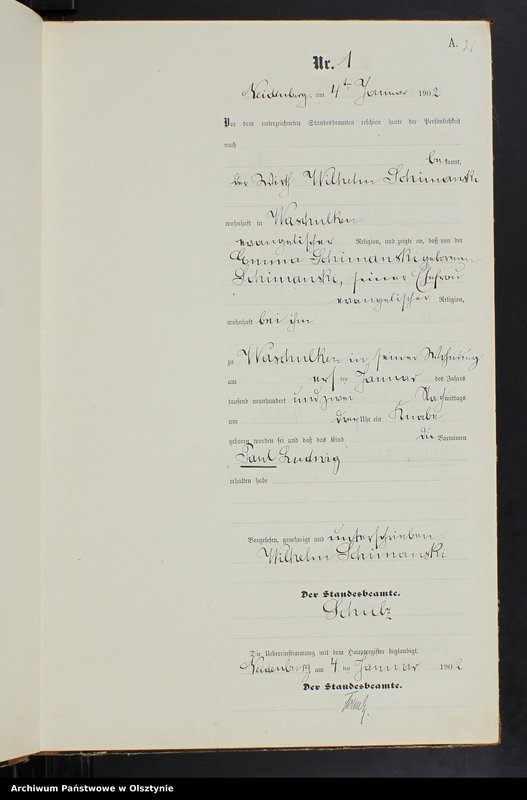 A. 2
Nr. 1
Neidenburg, am 4ten Januar 1902
Vor dem unterzeichneten Standesbeamten erschien heute der Persönlichkeit
nach
bekannt,
der Wirth Wilhelm Schimanski
wohnhaft in Waschulken
evangelischer Religion, und zeigte an, daß von der
Emma Schimanski geborenen
Schimanski, seiner Ehefrau
evangelischer Religion,
wohnhaft bei ihm
zu Waschulken in seiner Wohnung
am ersten Januar des Jahres
tausend neunhundert und zwei Nachmittags
um drei Uhr ein Knabe
geboren worden sei und daß das Kind die Vornamen
Paul Ludwig
erhalten habe
Vorgelesen, genehmigt und unterschrieben
Wilhelm Schimanski
Der Standesbeamte.
Schulz
Die Uebereinstimmung mit dem Hauptregister beglaubigt.
Neidenburg am 4 ten Januar 1902
Der Standesbeamte.
Archiwum Państwowe w Olsztynie